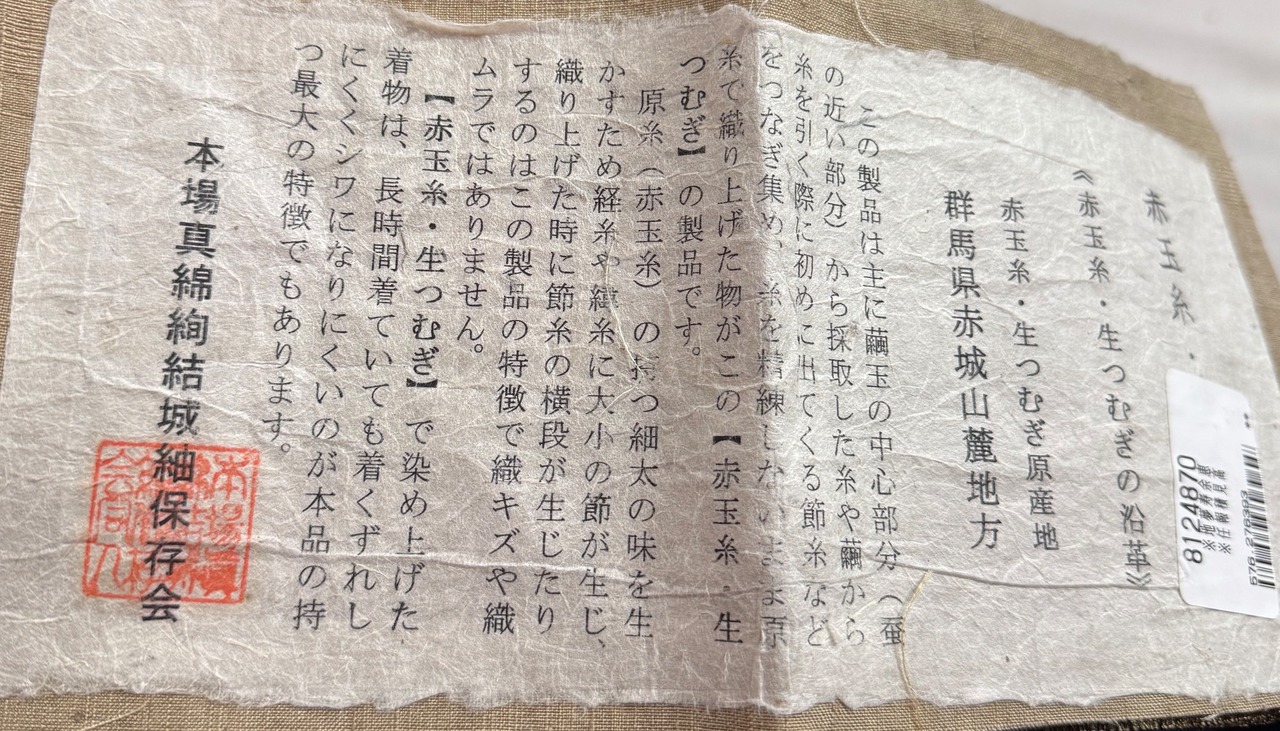 赤玉糸・
《赤玉糸・生つむぎの沿革》
赤玉糸・生つむぎ原産地
群馬県赤城山麓地方
この製品は主に繭玉の中心部分（蚕
の近い部分）から採取した糸や繭から
糸を引く際に初めに出てくる節糸など
をつなぎ集め、糸を精練しないまま原
糸で織り上げた物がこの【赤玉糸・生
つむぎ】の製品です。
原糸（赤玉糸）の持つ細太の味を生
かすため経糸や緯糸に大小の節が生じ、
織り上げた時に節糸の横段が生じたり
するのはこの製品の特徴で織キズや織
ムラではありません。
【赤玉糸・生つむぎ】で染め上げた
着物は、長時間着ていても着くずれし
にくくシワになりにくいのが本品の持
つ最大の特徴でもあります。
本場真綿絢結城紬保存会
8124870